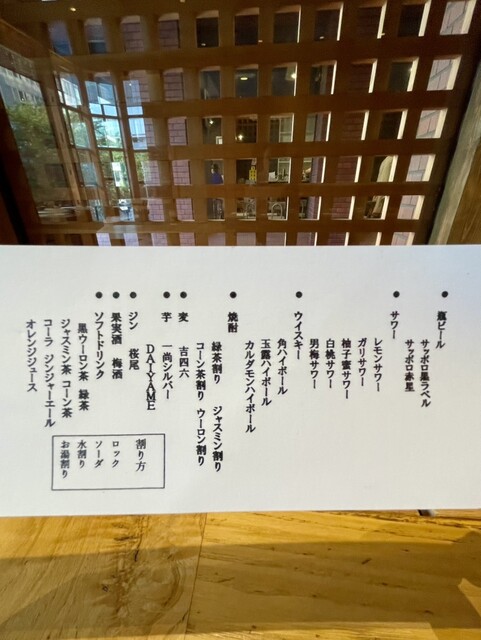 ● 瓶ビール
サッポロ黒ラベル
サッポロ赤星
● サワー
レモンサワー
ガリサワー
柚子蜜サワー
白桃サワー
男梅サワー
● ウイスキー
角ハイボール
玉露ハイボール
カルダモンハイボール
● 焼酎
緑茶割り ジャスミン割り
コーン茶割り ウーロン割り
● 麦 吉四六
● 芋 一尚シルバー
DAIYAME
● ジン 桜尾
● 果実酒 梅酒
● ソフトドリンク
黒ウーロン茶 緑茶
ジャスミン茶 コーン茶
コーラ ジンジャーエール
オレンジジュース
割り方
ロック
ソーダ
水割り
お湯割り